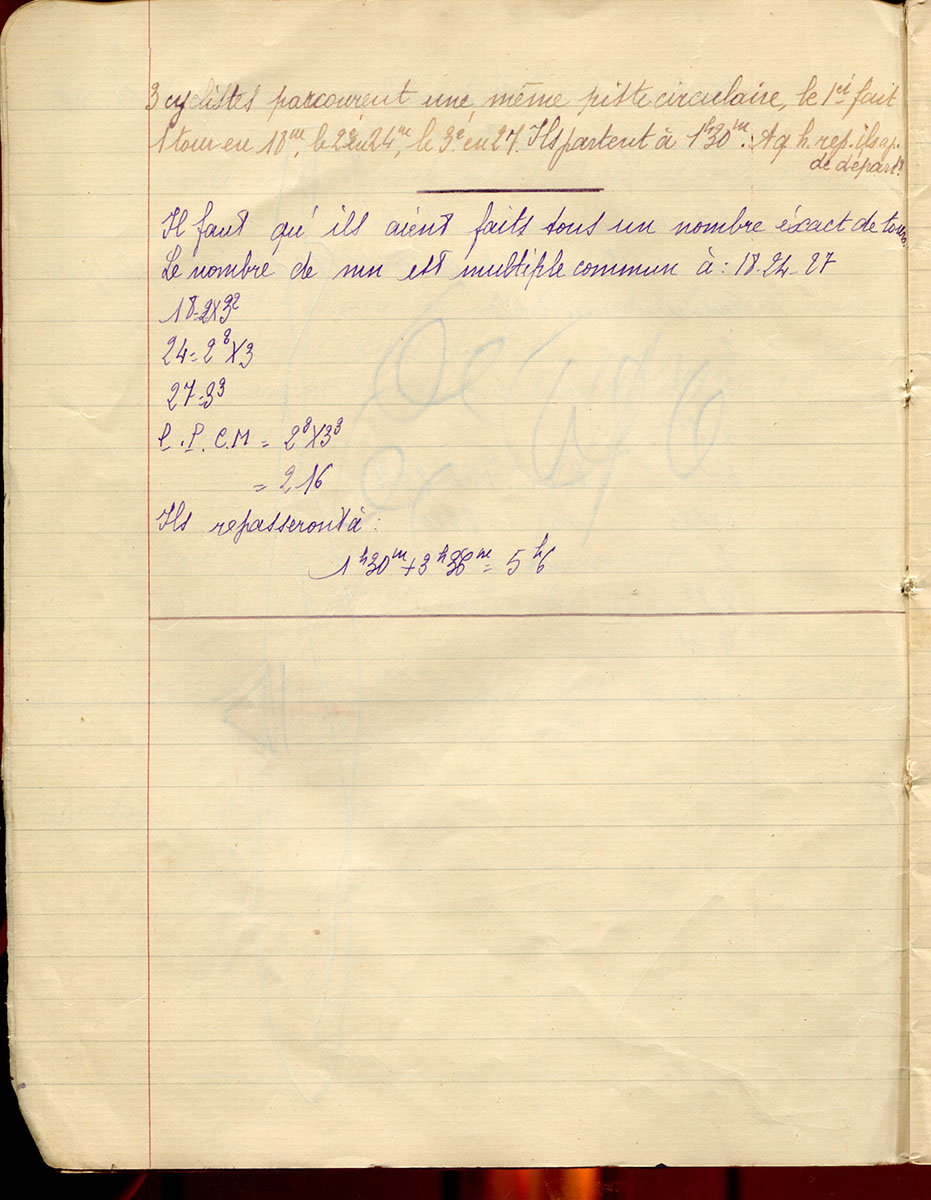 3 cyclistes parcourent une même piste circulaire, le 1er fait
1 tour en 18m, le 2e en 24m, le 3e en 27. Ils partent à 1h30m. A q h. rep. ils ap.
de départ?
Il faut qu' ils aient faits tous un nombre éxact de tours.
Le nombre de mn est multiple commun à : 18-24-27
18=2X3²
24=2³X3
27=3³
P.P.C.M = 2³X3³
= 216
Ils repasseront à :
1h30m+3h36m= 5h6